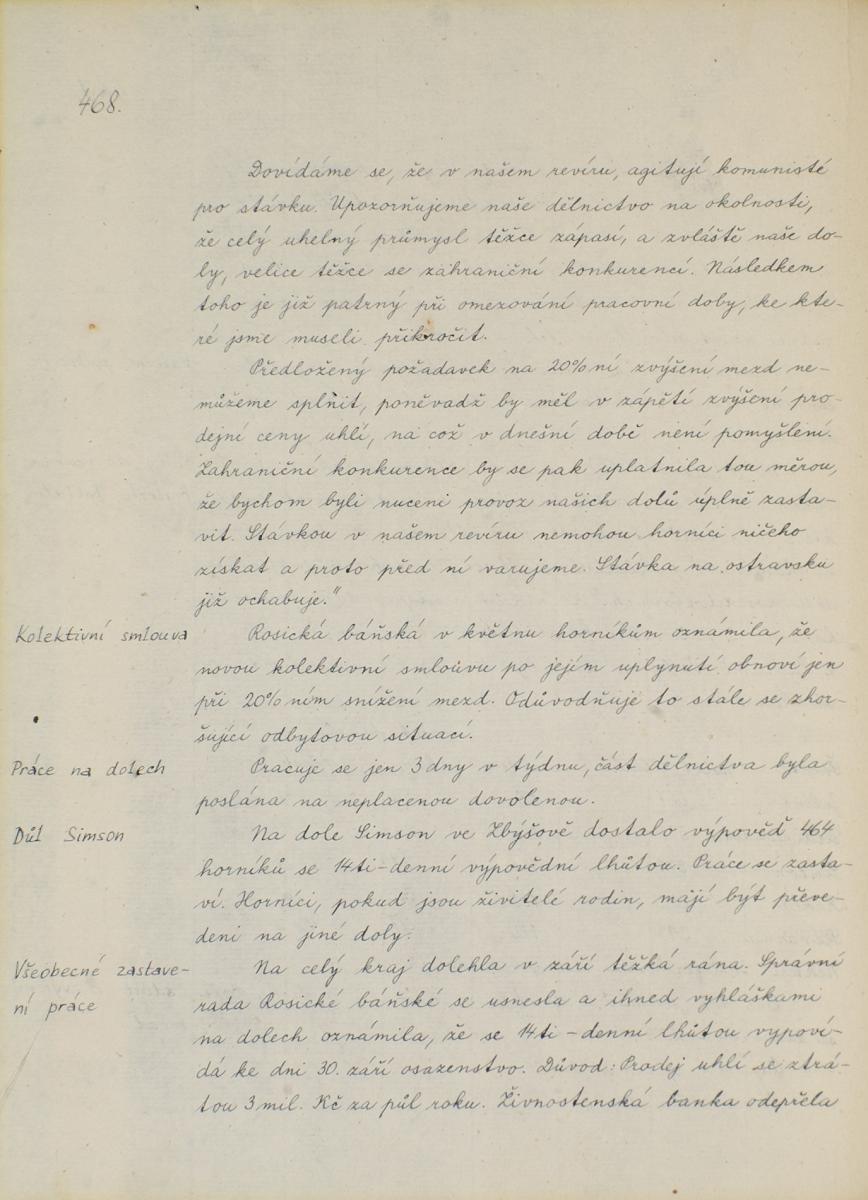 468.
Dovídáme se, že v našem revíru, agitují komunisté
pro stávku. Upozorňujeme naše dělnictvo na okolnosti,
že celý uhelný průmysl těžce zápasí, a zvláště naše do-
ly, velice těžce se zahraniční konkurencí. Následkem
toho je již patrný při omezování pracovní doby, ke kte-
ré jsme museli přikročit.
Předložený požadavek na 20%ní zvýšení mezd ne-
můžeme splňit, poněvadž by měl v zápětí zvýšení pro-
dejní ceny uhlí, na což v dnešní době není pomyšlení.
Zahraniční konkurence by se pak uplatnila tou měrou,
že bychom byli nuceni provoz našich dolů úplně zasta-
vit. Stávkou v našem revíru nemohou horníci ničeho
získat a proto před ní varujeme. Stávka na ostravsku
již ochabuje."
Kolektivní smlouva
Rosická báňská v květnu horníkům oznámila, že
novou kolektivní smloúvu po jejém uplynutí obnoví jen
při 20%ním snížení mezd. Odůvodňuje to stále se zhor-
šující odbytovou situací.
Práce na dolech
Pracuje se jen 3 dny v týdnu, část dělnictva byla
poslána na neplacenou dovolenou.
Důl Simson
Na dole Simson ve Zbýšově dostalo výpověď 464
horníků se 14ti-denní výpovědní lhůtou. Práce se zasta-
ví. Horníci, pokud jsou živitelé rodin, májí být převe-
deni na jiné doly.
Všeobecné zastave-
ní práce
Na celý kraj dolehla v září těžká rána. Správní
rada Rosické báňské se usnesla a ihned vyhláškami
na dolech oznámila, že se 14ti-denní lhůtou vypoví-
dá ke dni 30. září osazenstvo. Důvod: Prodej uhlí se ztrá-
tou 3 mil. Kč za půl roku. Živnostenská banka odepřela